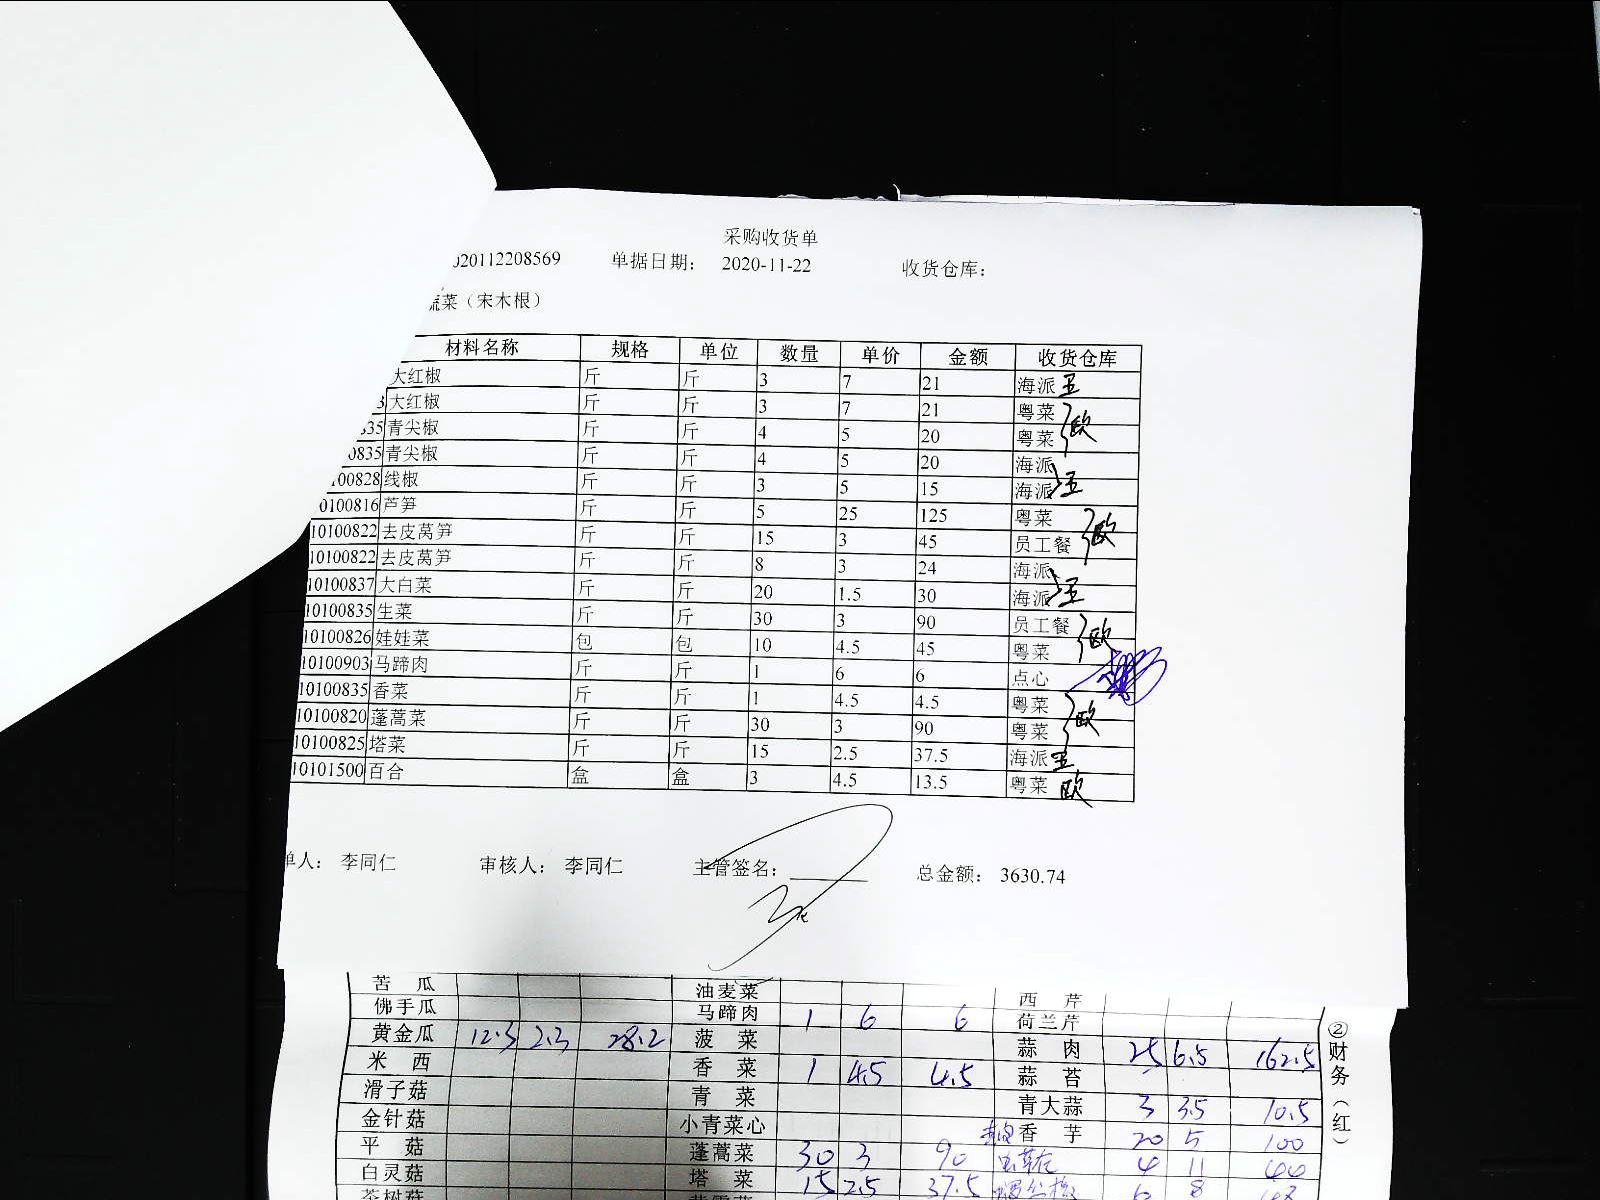 采购收货单
020112208569 单据日期： 2020-11-22 收货仓库：
蔬菜（宋木根）
材料名称 规格 单位 数量 单价 金额 收货仓库
大红椒 斤 斤 3 7 21 海派 王
3 大红椒 斤 斤 3 7 21 粤菜 欧
835 青尖椒 斤 斤 4 5 20 粤菜
0835 青尖椒 斤 斤 4 5 20 海派 王
100828 线椒 斤 斤 3 5 15 海派
0100816 芦笋 斤 斤 5 25 125 粤菜 欧
10100822 去皮莴笋 斤 斤 15 3 45 员工餐
10100822 去皮莴笋 斤 斤 8 3 24 海派 王
10100837 大白菜 斤 斤 20 1.5 30 海派
10100835 生菜 斤 斤 30 3 90 员工餐 欧
10100826 娃娃菜 包 包 10 4.5 45 粤菜
10100903 马蹄肉 斤 斤 1 6 6 点心
10100835 香菜 斤 斤 1 4.5 4.5 粤菜 欧
10100820 蓬蒿菜 斤 斤 30 3 90 粤菜
10100825 塔菜 斤 斤 15 2.5 37.5 海派 王
10101500 百合 盒 盒 3 4.5 13.5 粤菜 欧
单人： 李同仁 审核人： 李同仁 主管签名： 总金额： 3630.74
苦瓜 油麦菜 西芹
佛手瓜 马蹄肉 1 6 6 荷兰芹
黄金瓜 12.3 2.3 28.2 菠菜 蒜肉 25 6.5 162.5
米西 香菜 1 4.5 4.5 蒜苔
滑子菇 青菜 青大蒜 3 3.5 10.5
金针菇 小青菜心 香芋 20 5 100
平菇 蓬蒿菜 30 3 90 4 11 44
白灵菇 塔菜 15 2.5 37.5 6 8 48
茶树菇
②财务（红）